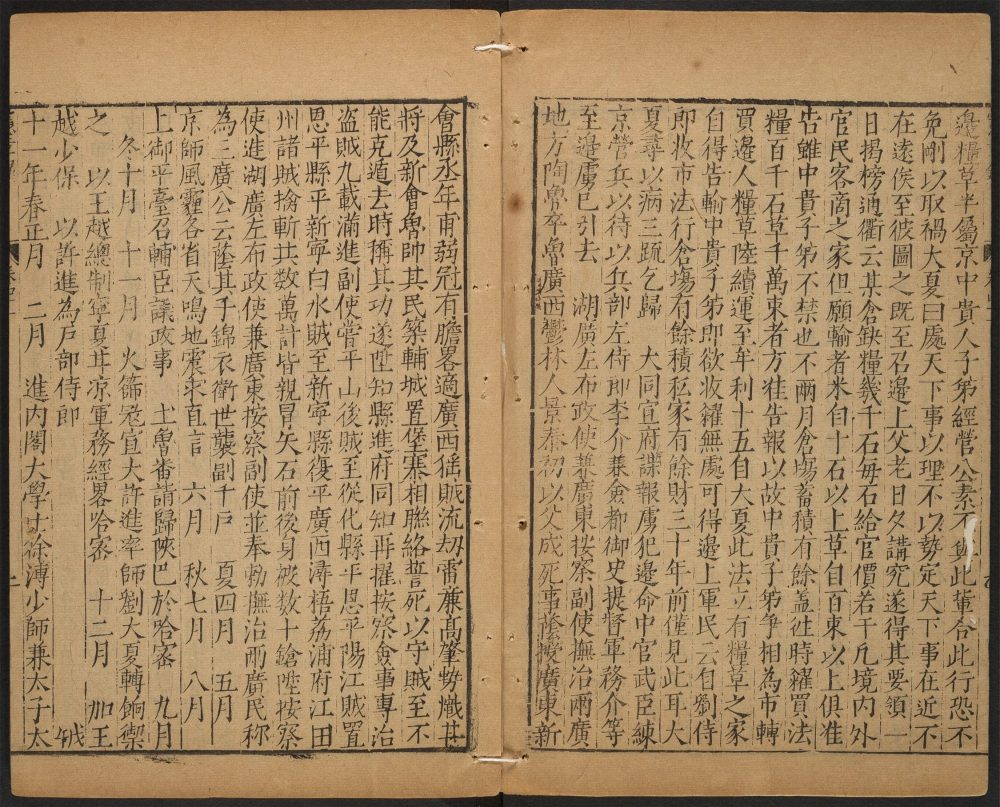 邊糧草半屬京中貴人子第經營公素不與此輩合此行恐不
免剛以取禍大夏曰處天下事以理不以勢定天下事在近不
在遠俟至彼圖之既至召邊上父老日夕講究遂得其要領一
日揭榜通衢云某倉缺糧幾千石毎石給官價若干凡境内外
官民客商之家但願輸者米自十石以上草自百束以上俱准
告雖中貴子第不禁也不兩月倉塲畜積有餘盖徃時糴買法
糧百千石草千萬束者方准告報以故中貴子第爭相為市轉
買邊人糧草陸續運至年利十五自大夏此法立有糧草之家
自得告輸中貴子第即欲收糴無處可得邊上軍民云自劉侍
郎收市法行倉塲有餘積私家有餘財三十年前僅見此耳大
夏尋以病三䟽乞歸　大同宣府諜報虜犯邊命中官武臣練
京營兵以待以兵部左侍郎李介兼僉都御史提督軍務介等
至邊虜已引去　湖廣左布政使兼廣東按察副使撫治兩廣
地方陶魯卒魯廣西鬱林人景泰初以父成死事蔭授廣東新
會縣丞年甫弱冠有膽畧適廣西猺賊流刼雷廉高肇勢熾甚
將及新會魯帥其民築輔城置堡寨相聯絡誓死以守賊至不
能克遁去時稱其功遂陞知縣進府同知再擢按察僉事專治
盜賊九載滿進副使嘗平山後賊至從化縣平恩平陽江賊置
恩平縣平新寧白水賊至新寧縣復平廣西潯梧荔浦府江田
州諸賊擒斬共数萬計皆親冒矢石前後身被数十鎗陞按察
使進湖廣左布政使兼廣東按察副使並奉勑撫治兩廣民称
為三廣公云蔭其子錦衣衛世襲副千戸　夏四月　五月
京師風霾各省天鳴地震求直言　六月　秋七月　八月
上御平臺召輔臣議政事　土魯番請歸陝巴於哈密　九月
冬十月　十一月　火篩寇宣大許進率師劉大夏轉餉禦
之　以王越總制寧夏甘凉軍務經畧哈密　十二月　加王
越少保　以許進為戸部侍郎
十一年春正月　二月　進内閣大學士徐溥少師兼太子太